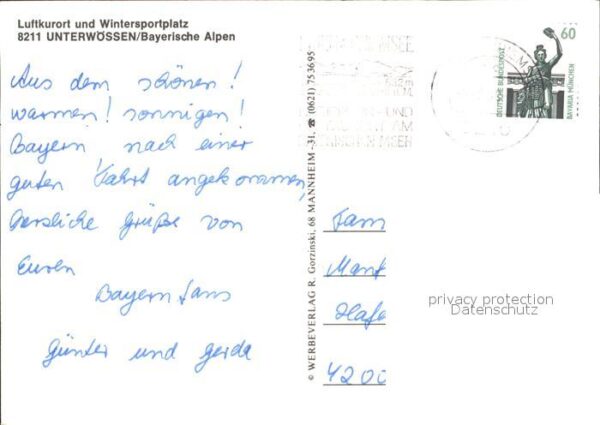 Luftkurort und Wintersportplatz
8211 UNTERWÖSSEN/Bayerische Alpen
Aus dem schönen!
warmen! sonnigen!
Bayern, nach einer
guten Fahrt angekommen,
herzliche Grüße von
Euren
Bayernfans
Günter und Gerda
© WERBEVERLAG R. Gorzinski, 68 MANNHEIM-31, ☎ (0621) 753695
60
DEUTSCHE BUNDESPOST
BAVARIA MÜNCHEN
Fam
Manf
Hafe
4200
privacy protection
Datenschutz